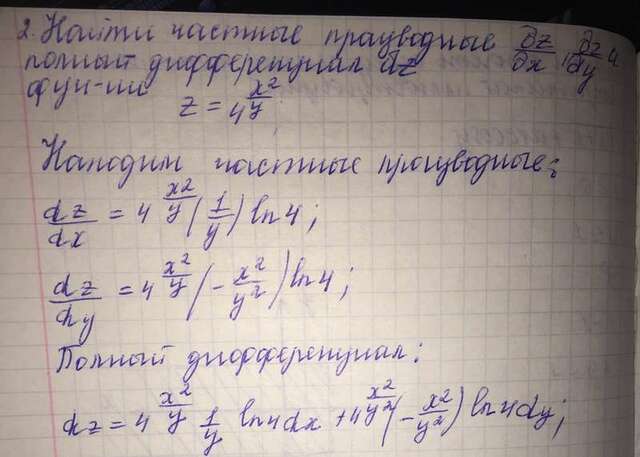 2. Найти частные производные ∂z/∂x, ∂z/∂y и
полный дифференциал dz
фун-ии
z = 4^(x²/y)
Находим частные производные:
dz/dx = 4^(x²/y) (1/y) ln 4;
dz/dy = 4^(x²/y) (-x²/y²) ln 4;
Полный дифференциал:
dz = 4^(x²/y) 1/y ln 4 dx + 4^(x²/y²) (-x²/y²) ln 4 dy;